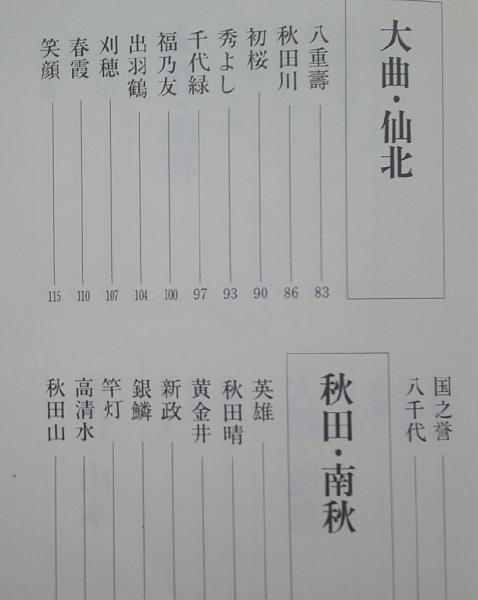 大曲・仙北
八重壽 83
秋田川 86
初桜 90
秀よし 93
千代緑 97
福乃友 100
出羽鶴 104
刈穂 107
春霞 110
笑顔 115
国之誉
八千代
秋田・南秋
英雄
秋田晴
黄金井
新政
銀鱗
竿灯
高清水
秋田山